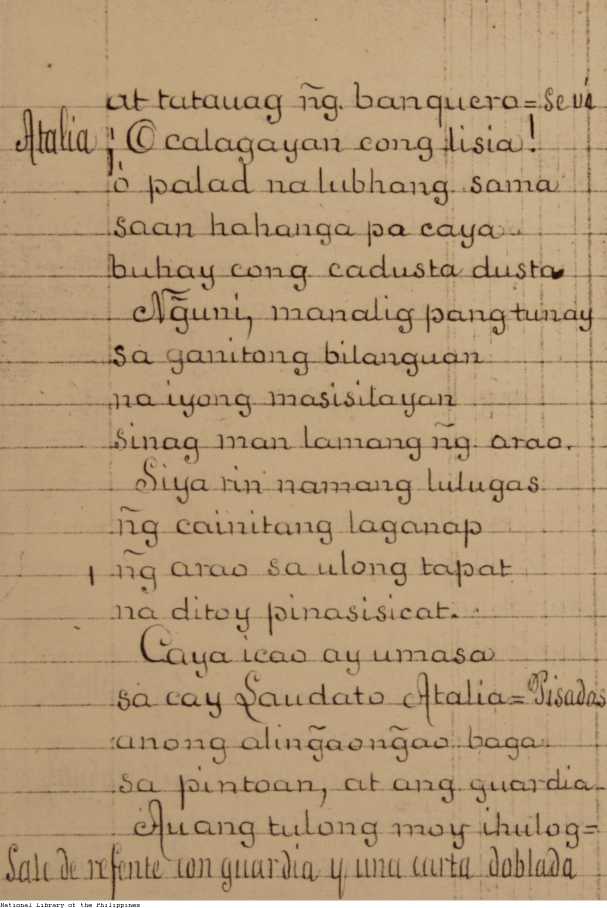 at tatauag ñg. banquero = Se vá
Atalia ¡O calagayan cong lisia!
ó palad na lubhang sama
saan hahanga pa caya
buhay cong cadusta dusta
Ng̃uni, manalig pang tunay
sa ganitong bilanguan
na iyong masisilayan
sinag man lamang ñg. arao.
Siya rin namang lulugas
ñg cainitang laganap
ñg arao sa ulong tapat
na ditoy pinasisicat.
Caya icao ay umasa
sa cay Laudato Atalia = Pisadas
anong aling̃aong̃ao baga
sa pintoan, at ang guardia
Auang tulong moy ihulog =
Sale de refente con guardia y una carta doblada
National Library of the Philippines